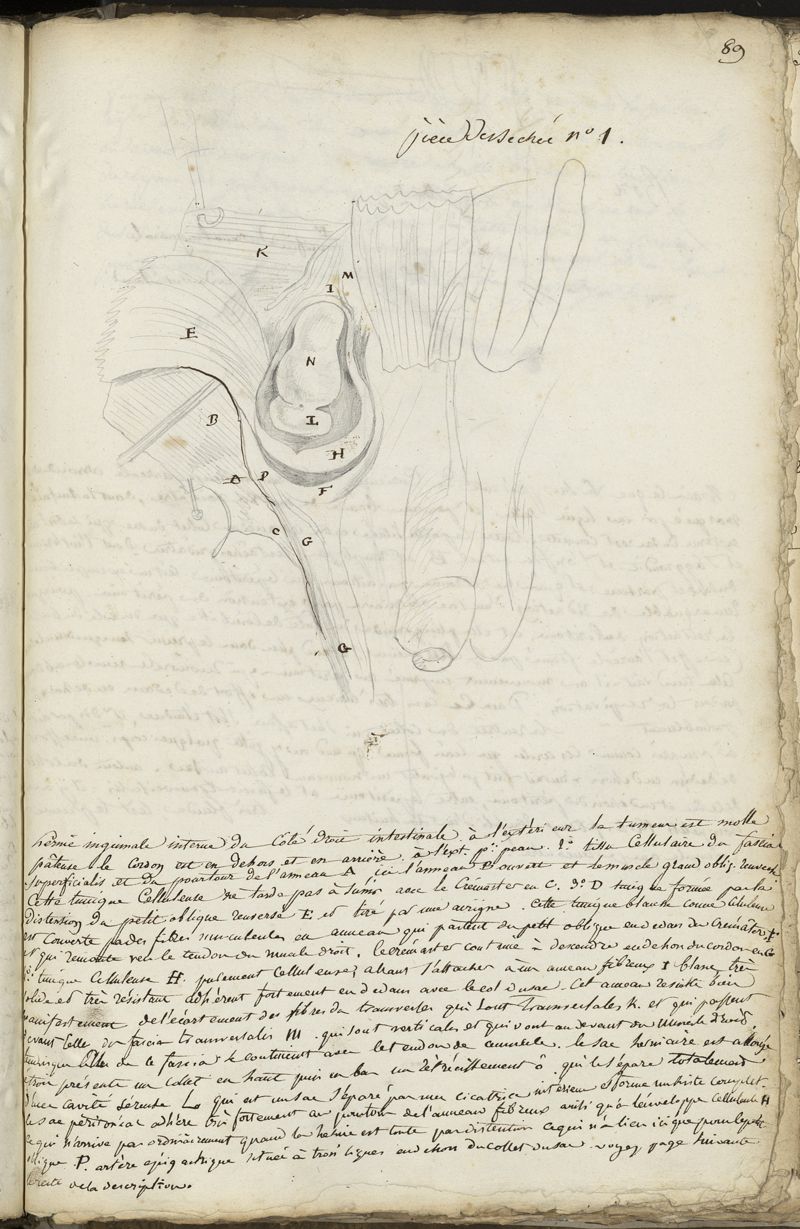 89
pièce Desséchée n° 1.
K
M
I
E
N
B
L
H
A P
F
C
G
G
hernie inguinale interne du Côté droit intestinale à l'extérieur la tumeur est molle
pâteuse le Cordon est en dehors et en arrière, à l'ext. peau. 2° tissu Cellulaire du fascia
superficialis et du pourtour de l'anneau A ici l'anneau B ouvert et le muscle grand obliq. renversé
Cette tunique Celluleuse ne tarde pas à s'unir avec le Crémaster en C. 3° D tunique formée par la
distension du petit oblique renversé E et tiré par une érigne. Cette tunique blanche comme Celluleuse
est Couverte par des fibres musculeuses en anneau qui partent du petit oblique en dedans du Crémaster F
et qui remonte vers le tendon du muscle droit. le crémaster continue à descendre en dehors du cordon en G
tunique Celluleuse H. purement Celluleuse allant s'attacher à un anneau fibreux I blanc, très
solide et très résistant adhérent fortement en dedans avec le col du sac. Cet anneau résulte bien
manifestement de l'écartement des fibres du transverse qui sont transversales K. et qui passent
devant Celles du fascia transversalis M. qui sont verticales et qui vont au devant du muscle droit.
de le fascia se continuent avec le tendon de ce muscle. le sac herniaire est allongé
étroit présente un Collet en haut puis en bas un rétrécissement ô qui le sépare totalement
d'une cavité séreuse L qui est un sac séparé par une cicatrice intérieure et forme un kiste complet.
le sac péritonéal adhère très fortement au pourtour de l'anneau fibreux ainsi qu'à l'enveloppe Celluleuse H
ce qui n'arrive pas ordinairement quand la hernie est toute par distention ce qui n'a lieu ici que pour le petit
oblique P. artère épigastrique située à trois lignes en dehors du collet du sac voyez page suivante
le reste de la description.